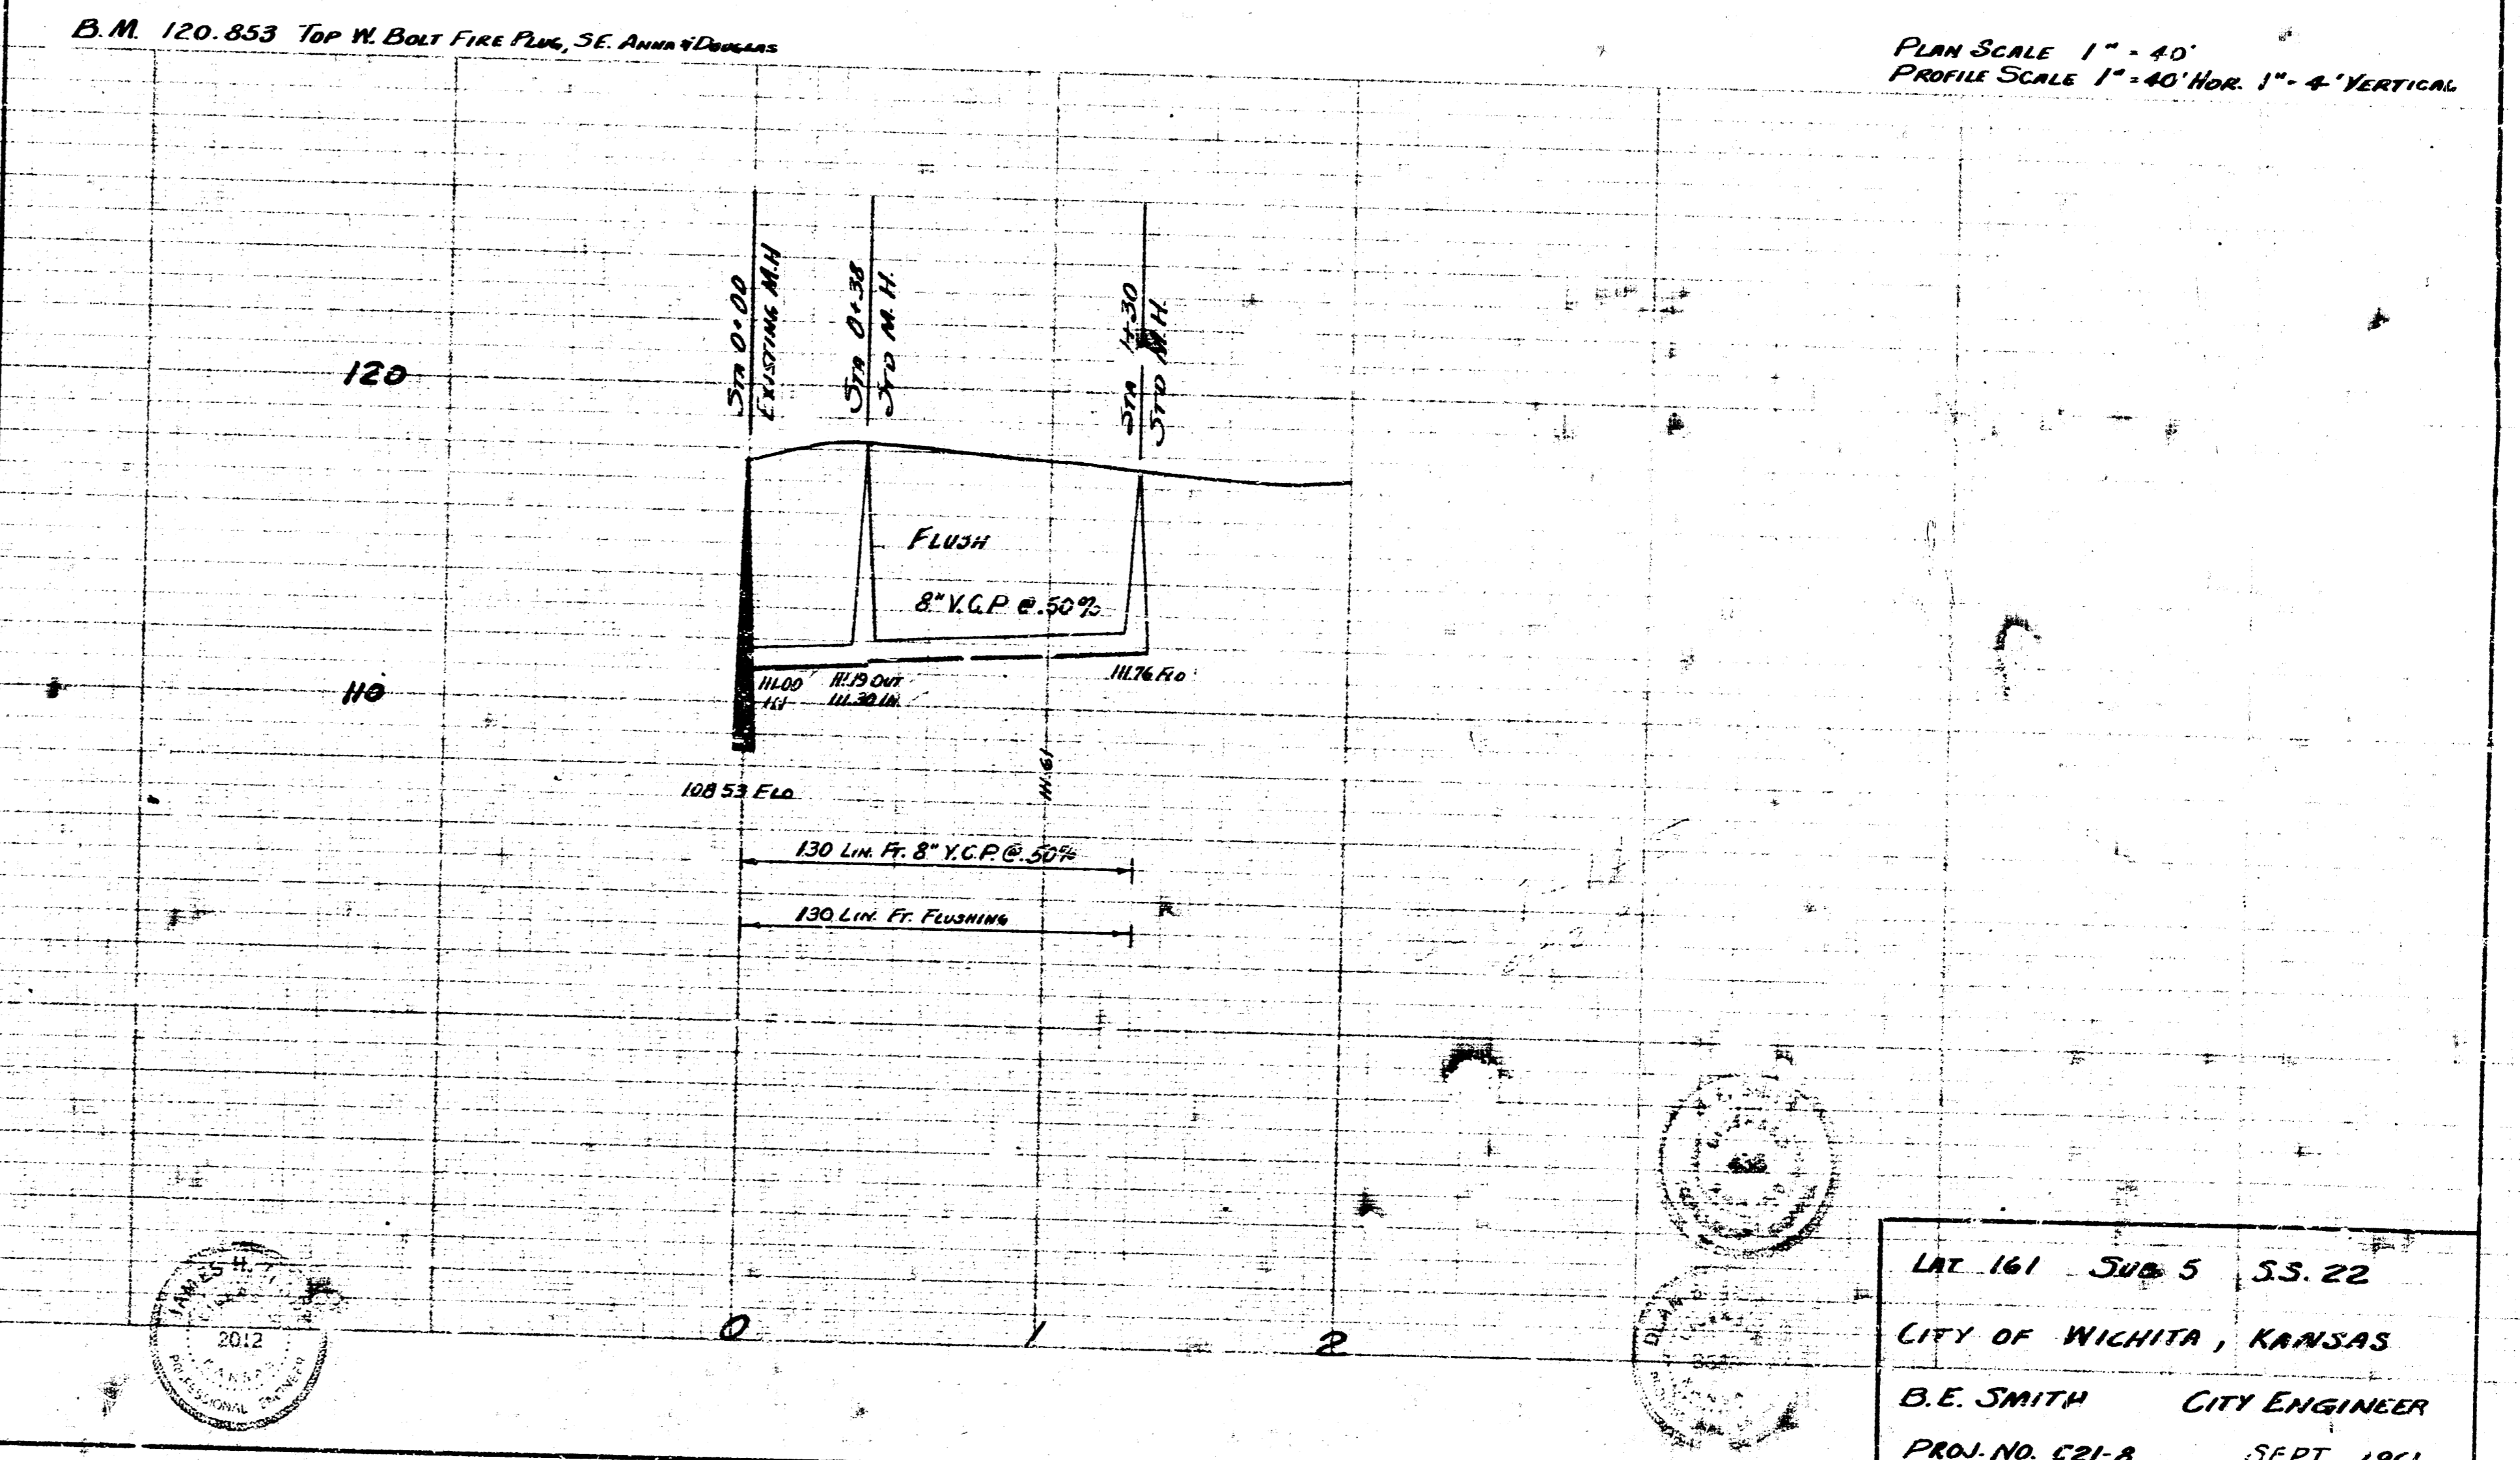 B.M. 120.853 TOP W. BOLT FIRE PLUG, S.E. ANNA & DOUGLAS
PLAN SCALE 1" = 40'
PROFILE SCALE 1" = 40' HOR. 1" - 4' VERTICAL
STA 0+00
EXISTING M.H
STA 0+38
STD M.H.
STA 1+30
STD M.H.
120
FLUSH
8" V.C.P. @ .50%
110
111.00
111.19 OUT
111.30 IN
111.76 FLO
111.61
108.53 FLO
130 LIN. FT. 8" V.C.P. @ .50%
130 LIN. FT. FLUSHING
0 1 2
JAMES H.
2012
KANSAS
PROFESSIONAL ENGINEER
DEAN
LAT 161 SUB 5 S.S. 22
CITY OF WICHITA, KANSAS
B.E. SMITH CITY ENGINEER
PROJ. NO. C21-8 SEPT 1961